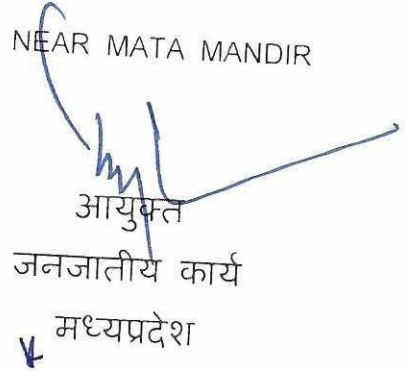 NEAR MATA MANDIR
आयुक्त
जनजातीय कार्य
मध्यप्रदेश